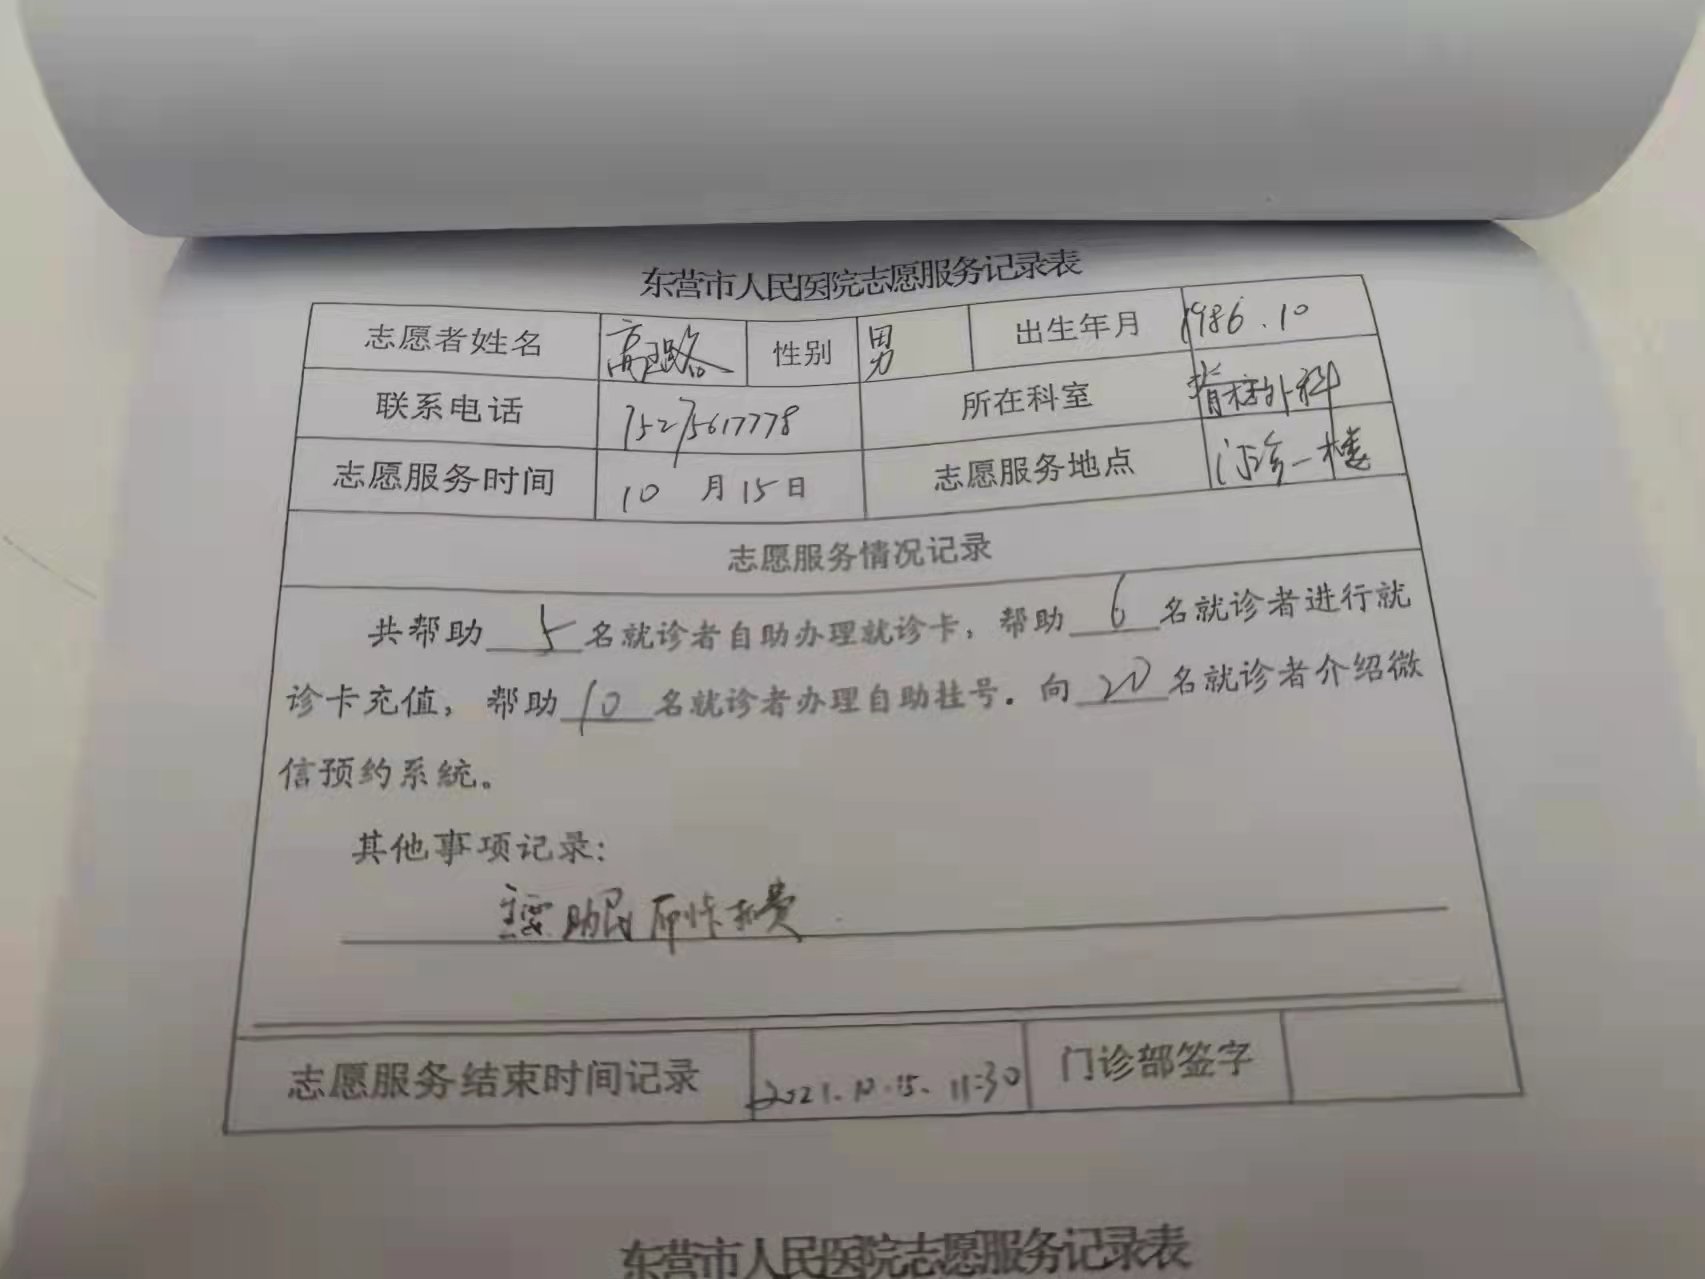 东营市人民医院志愿服务记录表
志愿者姓名 高 性别 男 出生年月 1986.10
联系电话 15275617778 所在科室 脊柱外科
志愿服务时间 10月15日 志愿服务地点 门诊一楼
志愿服务情况记录
共帮助5名就诊者自助办理就诊卡，帮助6名就诊者进行就
诊卡充值，帮助10名就诊者办理自助挂号。向20名就诊者介绍微
信预约系统。
其他事项记录：
主要助民 费
志愿服务结束时间记录 2021.10.15. 11:30 门诊部签字
东营市人民医院志愿服务记录表